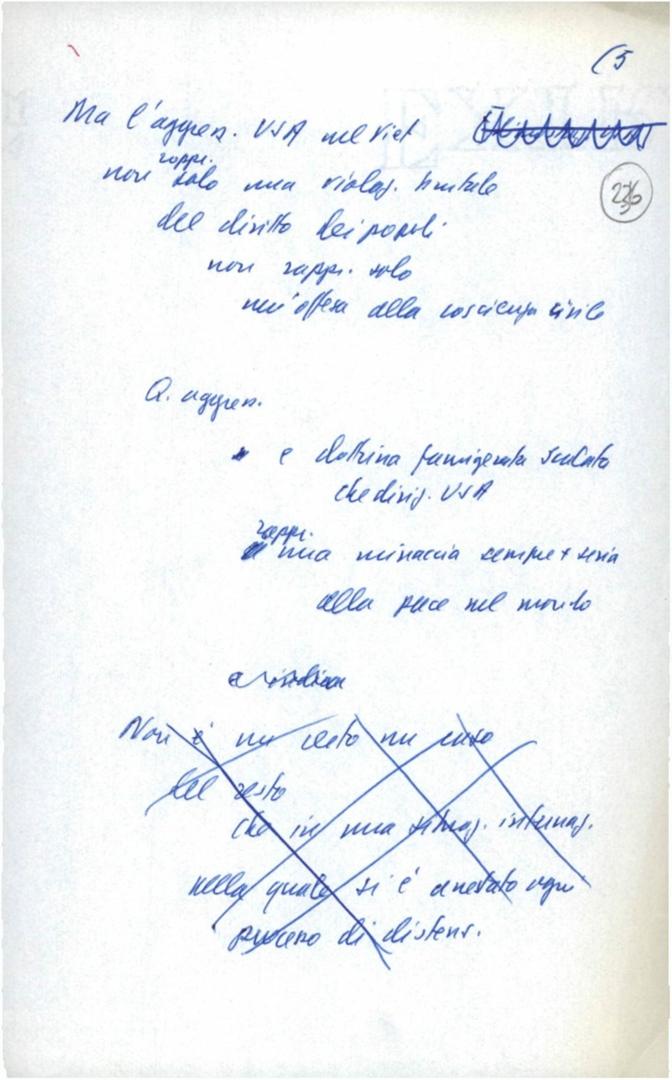 (5
Ma l'aggres. USA nel Viet
236
rappr.
non solo una violaz. brutale
del diritto dei popoli
non rappr. solo
un'offesa alla coscienza civile
Q. aggres.
e dottrina famigerata
che dirig. USA
rappr.
una minaccia sempre + seria
alla pace nel mondo
Non è un certo un caso
del resto
che in una situaz. internaz.
nella quale si è arrestato ogni
processo di distens.